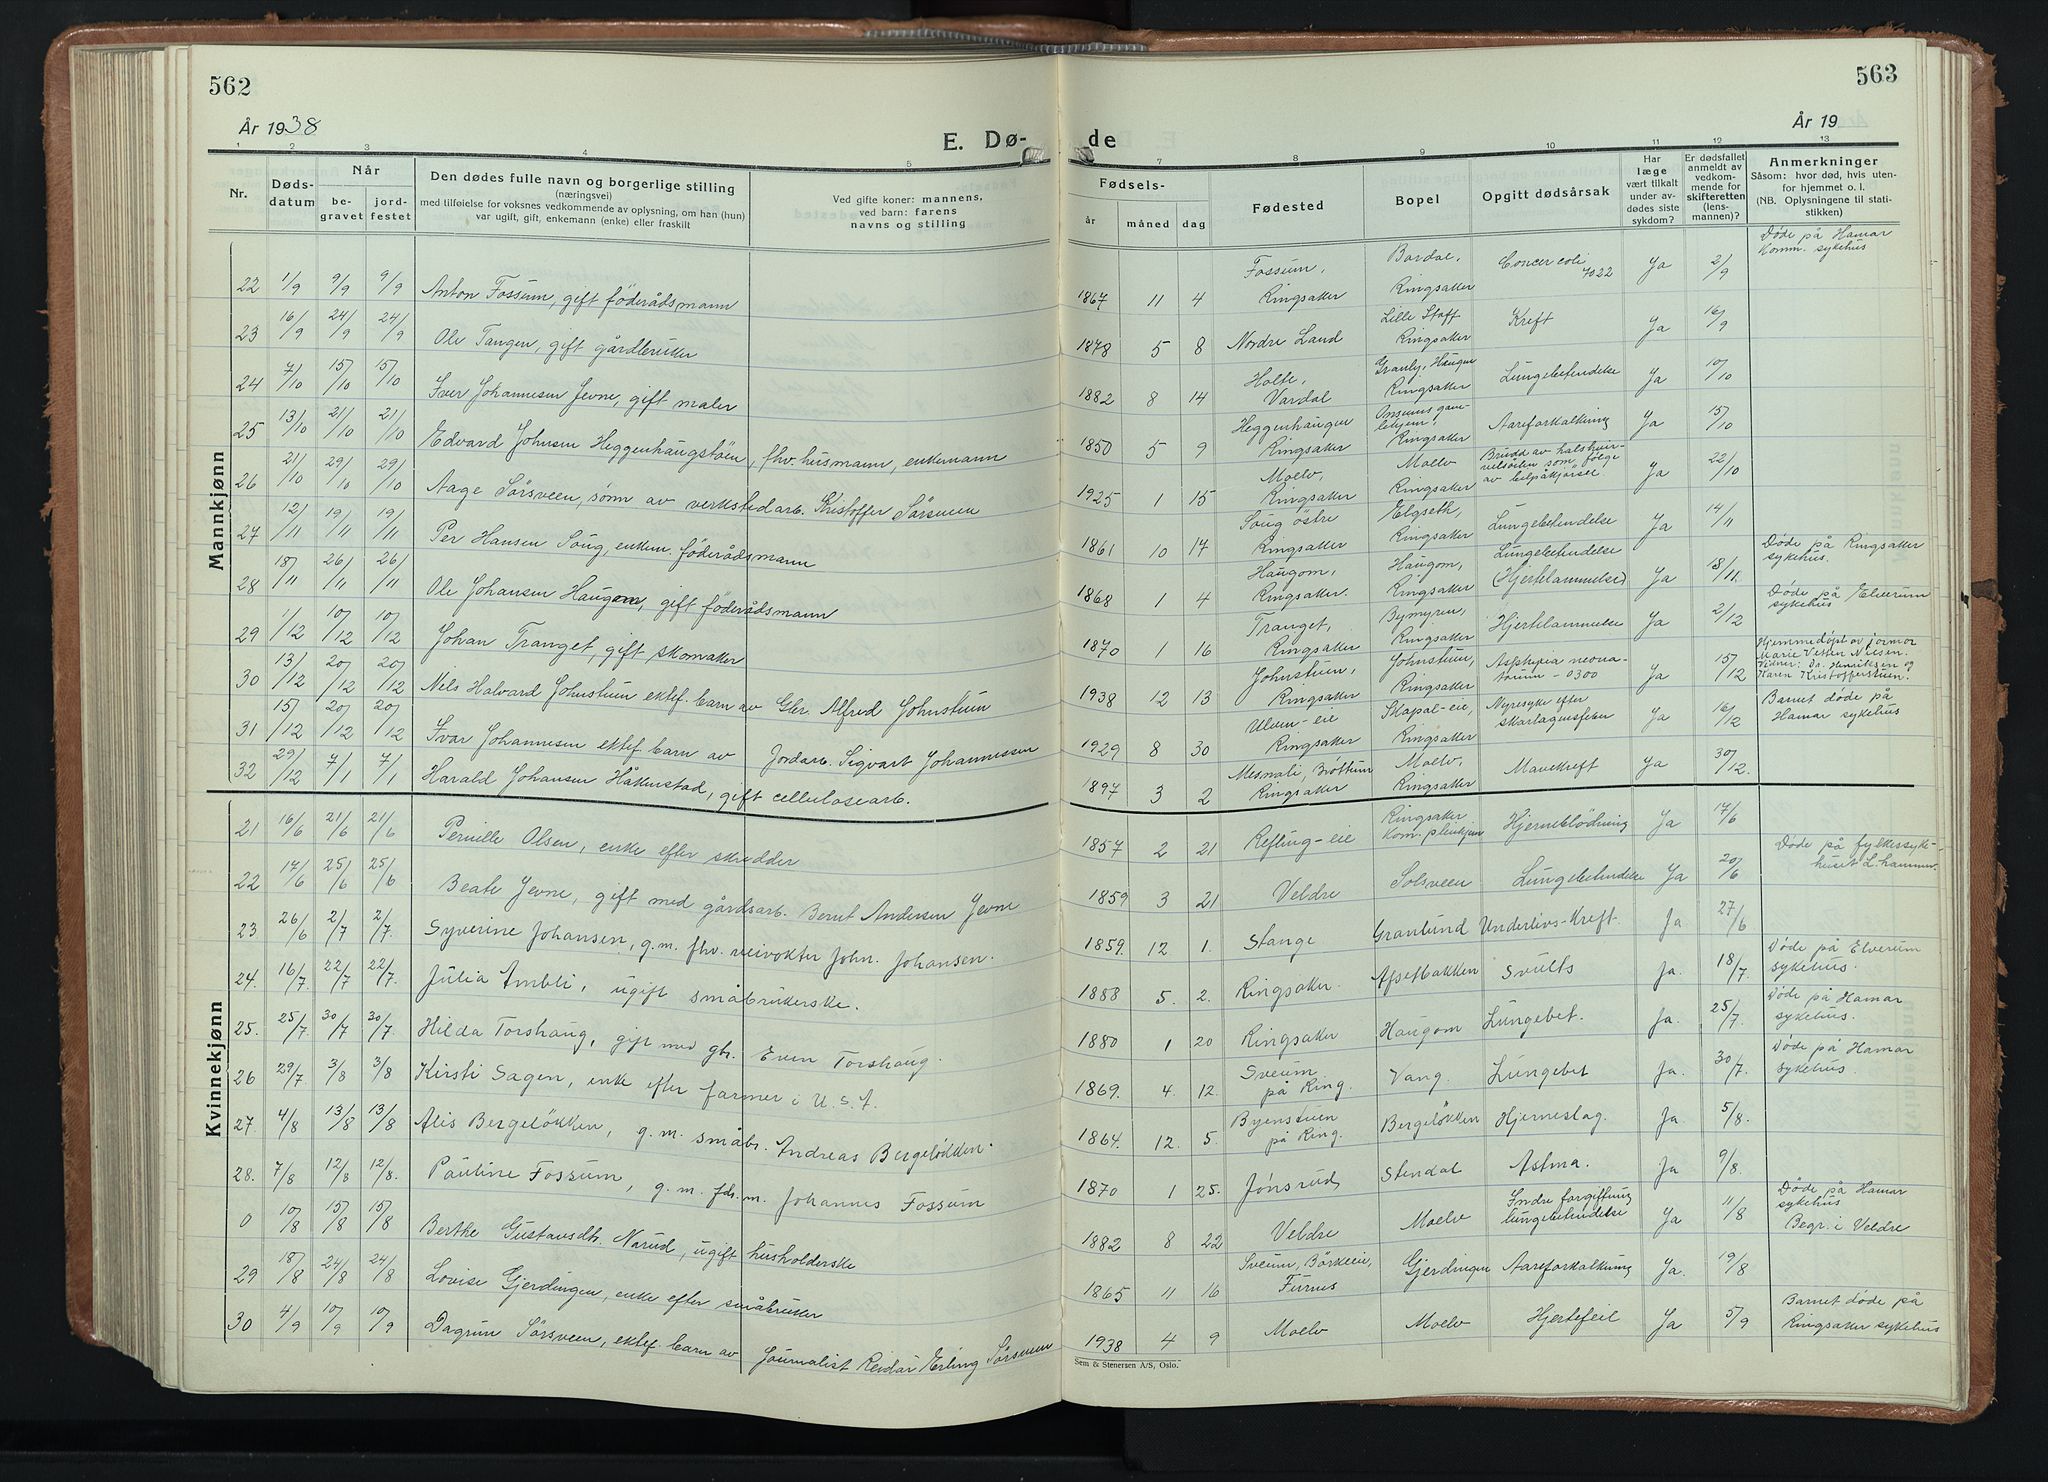 562
563
År 1938
E. Dø-
de
År 19
1 2 3 4 5 7 8 9 10 11 12 13
Nr.
Døds-
datum
Når
be-
gravet
jord-
festet
Den dødes fulle navn og borgerlige stilling
(næringsvei)
med tilføielse for voksnes vedkommende av oplysning, om han (hun)
var ugift, gift, enkemann (enke) eller fraskilt
Ved gifte koner: mannens,
ved barn: farens
navns og stilling
Fødsels-
år
måned
dag
Fødested
Bopel
Opgitt dødsårsak
Har
læge
vært tilkalt
under av-
dødes siste
sykdom?
Er dødsfallet
anmeldt av
vedkom-
mende for
skifteretten
(lens-
mannen)?
Anmerkninger
Såsom: hvor død, hvis uten-
for hjemmet o. l.
(NB. Oplysningene til stati-
stikken)
Mannkjønn
22 1/9 9/9 9/9 Anton Fossum, gift föderådsmann 1867 11 4 Fossum, Ringsaker Bardal, Ringsaker Cancer coli 7022 Ja 2/9 Døde på Hamar Komm. sykehus
23 16/9 24/9 24/9 Ole Tangen, gift gårdbruker 1878 5 8 Nordre Land Lille Staff Ringsaker Kreft Ja 16/9
24 7/10 15/10 15/10 Iver Johannesen Jevne, gift maler 1882 8 14 Holte, Vardal Granly, Haugen Ringsaker Lungebetendelse Ja 10/10
25 13/10 21/10 21/10 Edvard Johnsen Heggenhaugstöen, fhv. husmann, enkemann 1850 5 9 Heggenhaugen Ringsaker gam- lehjem, Ringsaker Aareforkalkning Ja 15/10
26 21/10 29/10 29/10 Aage Sörsveen, sønn av verkstedarb. Kristoffer Sörsveen 1925 1 15 Moelv, Ringsaker Moelv Ringsaker Brudd av halshvir- velsöilen som følge av bilpåkjørsel Ja 22/10
27 12/11 19/11 19/11 Per Hansen Saug, enkem. föderådsmann 1861 10 17 Saug östre Ringsaker Elgseth, Ringsaker Lungebetendelse Ja 14/11
28 18/11 26/11 26/11 Ole Johansen Haugom, gift föderådsmann 1868 1 4 Haugom, Ringsaker. Haugom, Ringsaker Lungebetendelse (Hjertelammelse) Ja 18/11. Døde på Ringsaker sykehus.
29 1/12 10/12 10/12 Johan Tranget, gift skomaker 1870 1 16 Tranget, Ringsaker Bymyren, Ringsaker Hjertelammelse Ja 2/12 Døde på Elverum sykehus
30 13/12 20/12 20/12 Nils Halvard Johnstuen ektef. barn av Gbr. Alfred Johnstuen 1938 12 13 Johnstuen, Ringsaker Johnstuen, Ringsaker Asphyxia neona- torum - 0300 Ja 15/12 Hjemmedøpt av jormor Marie Vesten Nilsen. Vidner: Dr. Henriksen og Karen Kristofferstuen.
31 15/12 20/12 20/12 Ivar Johannesen ektef. barn av Jordarb. Sigvart Johannessen 1929 8 30 Ulven-eie Ringsaker Skapal-eie, Ringsaker Nyresyke efter skarlagensfeber Ja 16/12 Barnet døde på Hamar sykehus
32 29/12 7/1 7/1 Harald Johansen Håkenstad, gift cellulosearb. 1897 3 2 Mesnali, Brøttum Ringsaker Moelv, Ringsaker Mavekreft Ja 30/12.
Kvinnekjønn
21 16/6 21/6 21/6 Pernille Olsen, enke efter skredder 1857 2 21 Refling-eie Ringsaker kom. pleiehjem Hjerneblödning Ja 17/6
22 17/6 25/6 25/6 Beate Jevne, gift med gårdsarb. Bernt Andersen Jevne 1859 3 21 Veldre Solsveen Lungebetendelse Ja 20/6 Døde på fylkessyke- huset L.hammer.
23 26/6 2/7 2/7. Syverine Johansen, g.m. fhv. veivokter John. Johansen. 1859. 12 1. Stange Granlund Underlivs-Kreft. Ja 27/6
24. 16/7. 22/7 22/7. Julia Ambli, ugift småbrukerske. 1888 5. 2. Ringsaker. Apsetbakken Svulst Ja. 18/7. Døde på Elverum sykehus.
25. 25/7. 30/7 30/7 Hilda Torshaug, gift med gbr. Even Torshaug. 1880 1 20 Ringsaker Haugom Lungebet. Ja. 25/7. Døde på Hamar sykehus.
26 29/7 3/8 3/8 Kirsti Sagen, enke efter farmer i U.S.A. 1869. 4. 12. Sveum på Ring. Vang. Lungebet Ja. 30/7. Døde på Hamar sykehus.
27. 4/8 13/8 13/8 Alis Bergelökken, g.m. småbr. Andreas Bergelökken. 1864. 12. 5. Byenstuen på Ring. Bergelökken Hjerneslag. Ja. 5/8
28. 7/8 12/8 12/8. Pauline Fossum, g.m. fdr.m. Johannes Fossum 1870 1 25. Jönsrud Stendal Astma. Ja 9/8.
0 10/8 15/8 15/8 Berthe Gustavsdtr. Narud, ugift husholderske 1882 8 22 Veldre Moelv Indre forgiftning lungebetendelse Ja 11/8 Døde på Hamar sykehus Begr. i Veldre
29 18/8 24/8 24/8 Lovise Gjerdingen, enke efter småbruker 1865 11 16 Sveum, Börkeeie, Furnes Gjerdingen Aareforkalkning Ja. 19/8
30 4/9 10/9 10/9 Dagrun Sörsveen, ektef. barn av Journalist Reidar Erling Sörsveen 1938 4 9 Moelv Moelv Hjertefeil Ja 5/9 Barnet døde på Ringsaker sykehus
Sem & Stenersen A/S, Oslo.